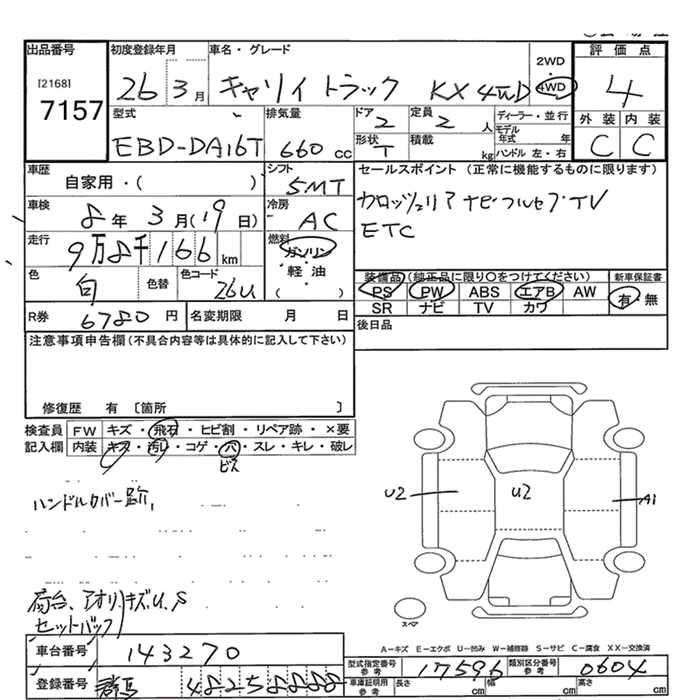 出品番号
[2168]
7157
初度登録年月
26 3月
車名・グレード
キャリイ トラック KX 4WD
2WD
4WD
評価点
4
外装 内装
C C
型式
EBD-DA16T
排気量
660 cc
ドア
2
定員
2 人
ディーラー・並行
モデル
年式 年
形状
T
積載
kg
ハンドル 左・右
車歴
自家用・( )
シフト
5MT
セールスポイント (正常に機能するものに限ります)
カロッツェリア ナビ フルセグTV
ETC
車検
8年 3月(19日)
冷房
AC
走行
9万8千166 km
燃料
ガソリン
・
軽油
( )
色
白
色替
色コード
26U
装備品(純正品に限り○をつけてください)
新車保証書
PS PW ABS エアB AW
有・無
SR ナビ TV カワ
R券 6780円
名変期限 月 日
後日品
注意事項申告欄(不具合内容等は具体的に記入して下さい)
修復歴 有 〔箇所 〕
検査員 FW キズ・飛石・ヒビ割・リペア跡・×要
記入欄 内装 キズ・汚れ・コゲ・穴・スレ・キレ・破レ
ビス
ハンドルカバー跡
U2
U2
A1
荷台、アオリ、キズ、U、S
セットバック
スペア
A−キズ E−エクボ U−凹み W−補修跡 S−サビ C−腐食 XX−交換済
車台番号 143270
登録番号 群馬 48258888
型式指定番号
参考
17596
類別区分番号
参考
0604
車庫証明用
参考
長さ cm
幅 cm
高さ cm